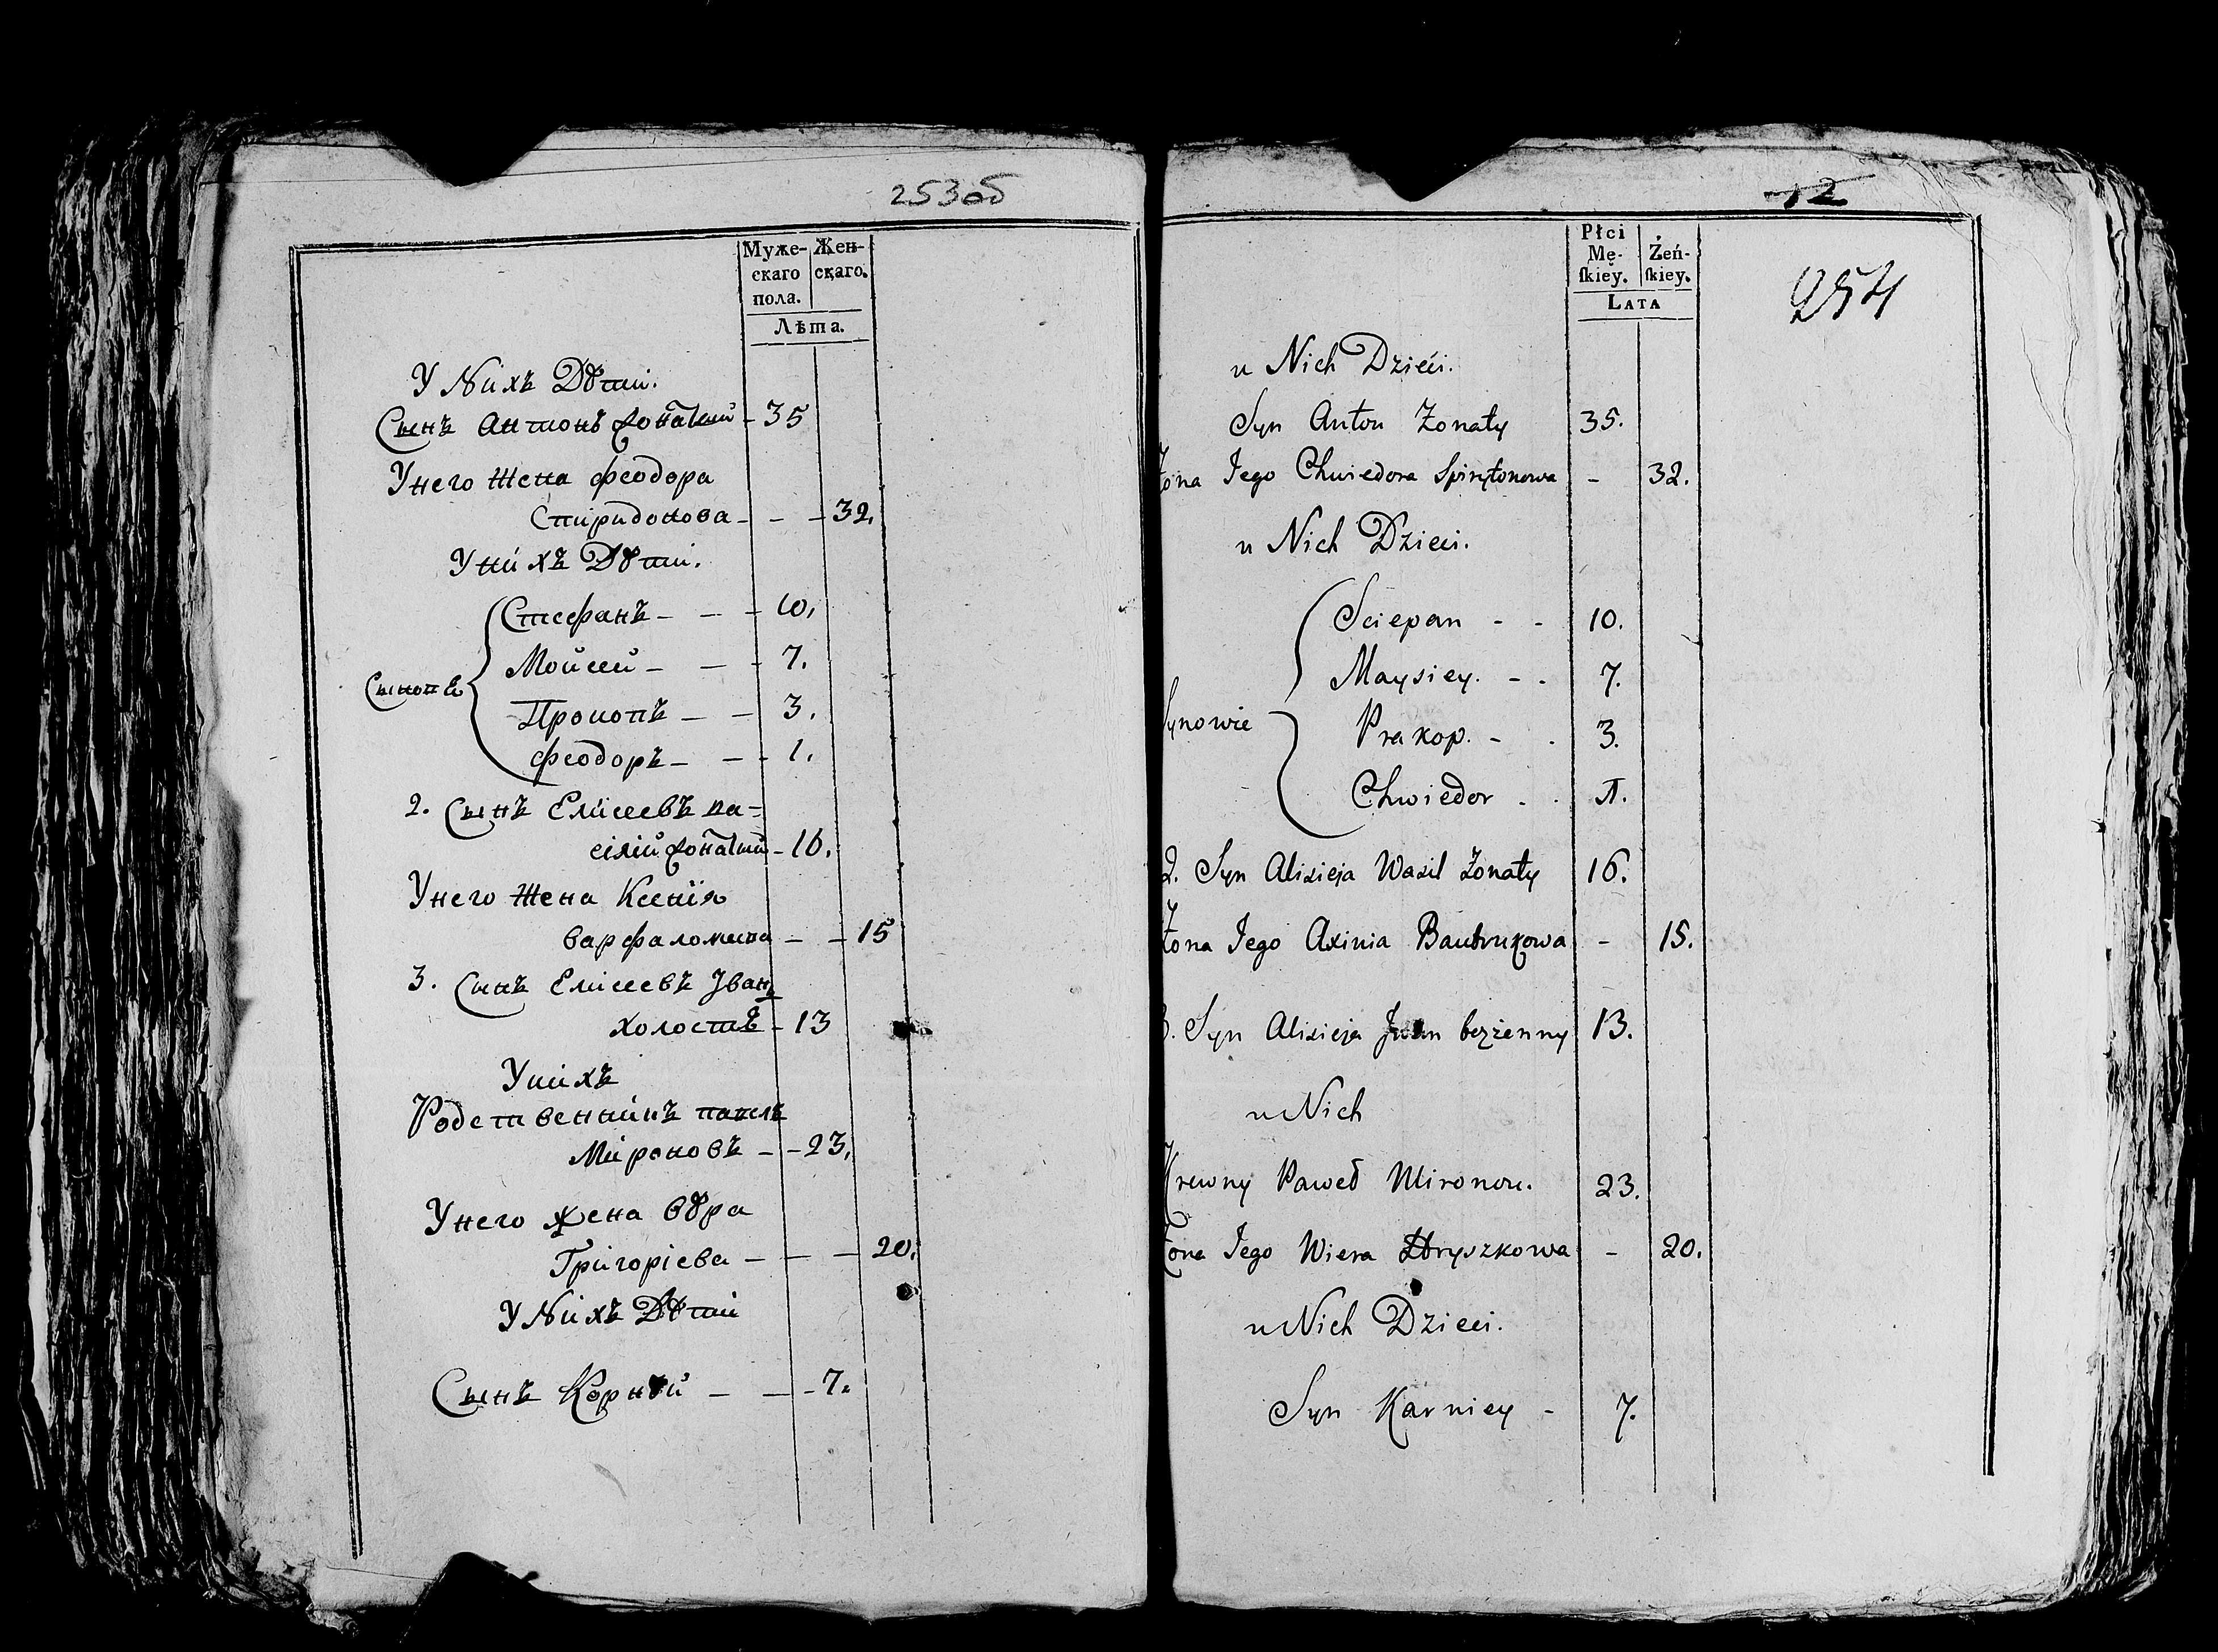 253об
Муже-
скаго
пола.
Жен-
скаго.
Лѣта.
У Нихъ Дѣти.
Сынъ Антонъ жонатый - 35
Унего жена Феодора
Спиридонова - - - 32.
Унихъ Дѣти.
Стефанъ - - - 10.
Мойсей - - - 7.
Сыновѣ
Прокопъ - - 3.
Феодоръ - - - 1.
2. Сынъ Елисеевъ ва=
силій жонатый - 16.
Унего жена Ксенія
варфаломеева - - 15
3. Сынъ Елисеевъ Іванъ
холостъ - 13
Унихъ
Родственникъ павелъ
Мироновъ - - 23.
Унего жена вѣра
Григоріева - - - 20.
У Нихъ Дѣти
Сынъ Корнѣй - - - 7.
12
Płci
Mę-
skiey.
Żeń-
skiey.
LATA
254
u Nich Dzieći.
Syn Anton Żonaty 35.
Żona Jego Chwiedora Spirytonowa - 32.
u Nich Dzieci.
Sciepan - - 10.
Maysiey. - - 7.
Synowie
Prakop. - . 3.
Chwiedor . . 1.
2. Syn Alisieja Wasil Żonaty 16.
Żona Jego Axinia Bautrukowa - 15.
3. Syn Alisieja Jwan bezżenny 13.
u Nich
Krewny Paweł Mironow. 23.
Żona Jego Wiera Hryszkowa - 20.
u Nich Dzieci.
Syn Karniey - 7.